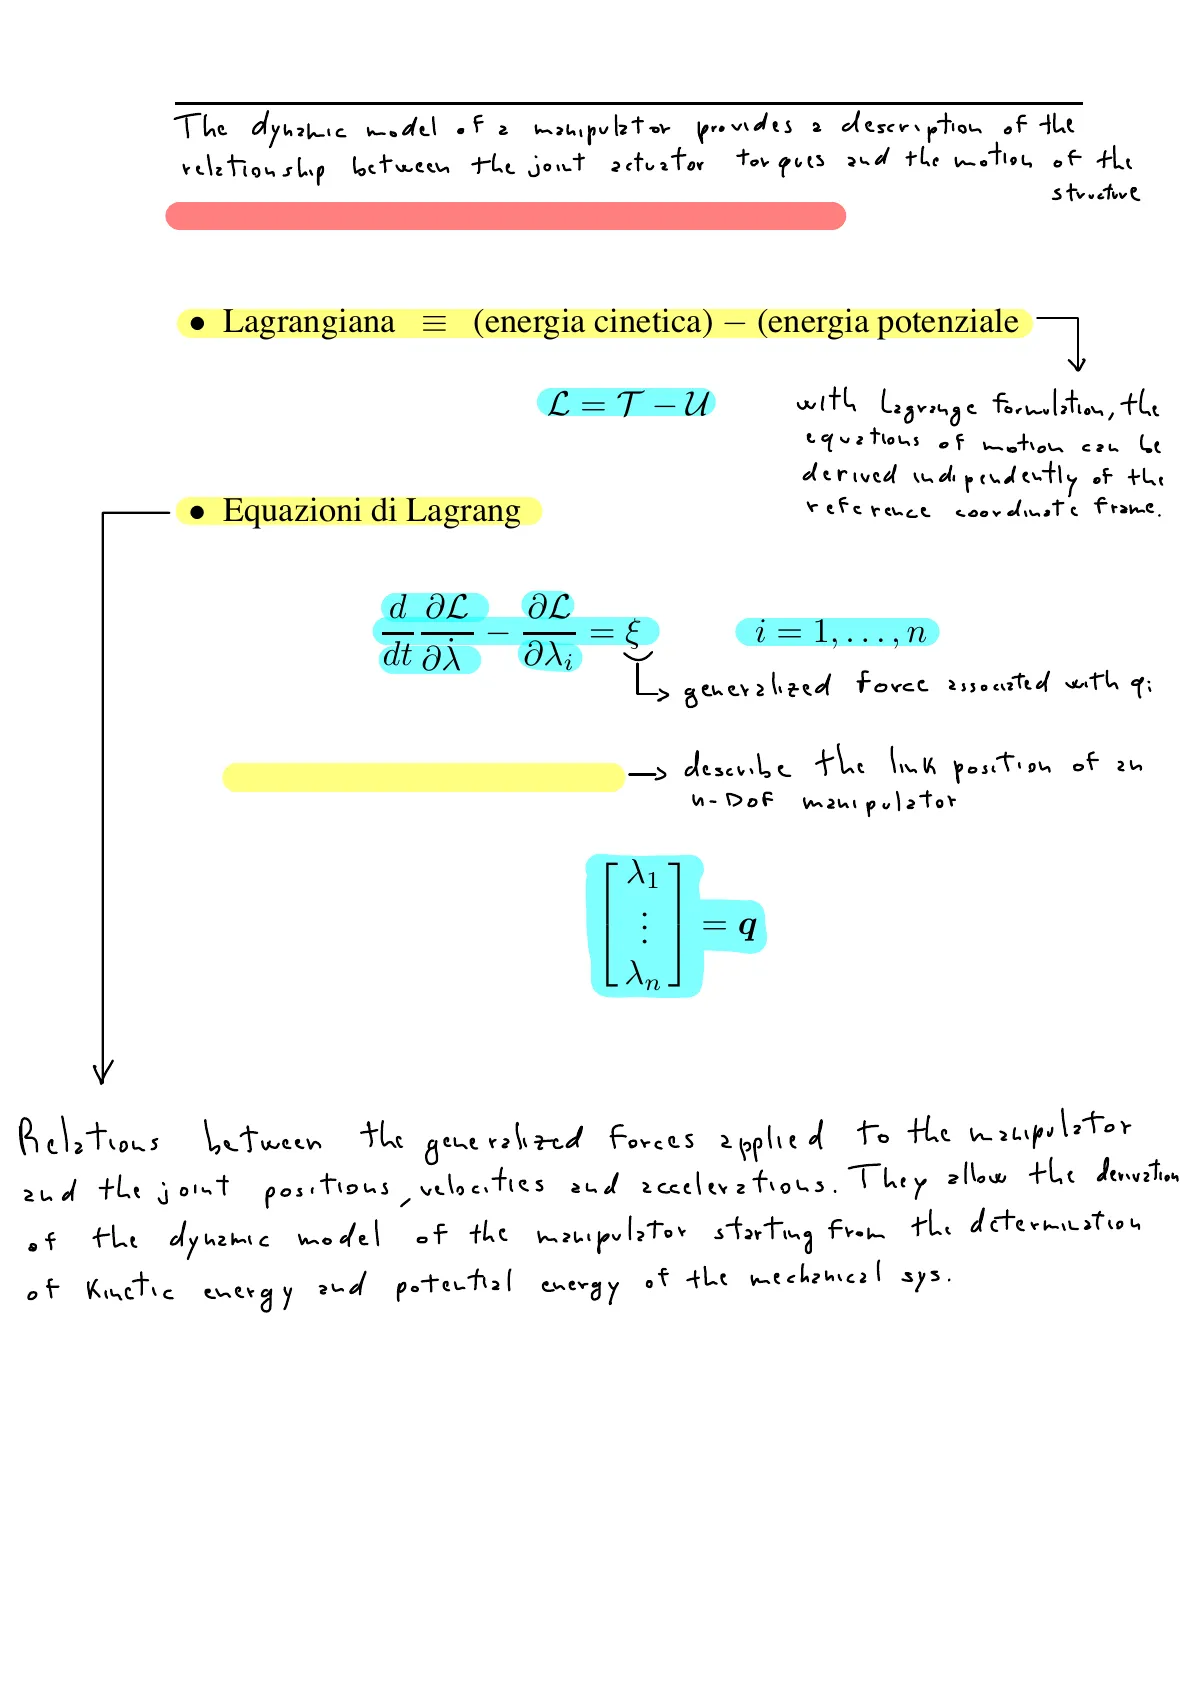 The dynamic model of a manipulator provides a description of the
relationship between the joint actuator torques and the motion of the
structure
• Lagrangiana ≡ (energia cinetica) − (energia potenziale
ℒ = 𝒯 − 𝒰
with Lagrange formulation, the
equations of motion can be
derived indipendently of the
reference coordinate frame.
• Equazioni di Lagrang
d/dt ∂ℒ/∂λ̇ − ∂ℒ/∂λᵢ = ξ i = 1, . . . , n
generalized force associated with qi
describe the link position of an
n-DoF manipulator
[λ₁ ⋮ λₙ] = q
Relations between the generalized forces applied to the manipulator
and the joint positions, velocities and accelerations. They allow the derivation
of the dynamic model of the manipulator starting from the determination
of kinetic energy and potential energy of the mechanical sys.